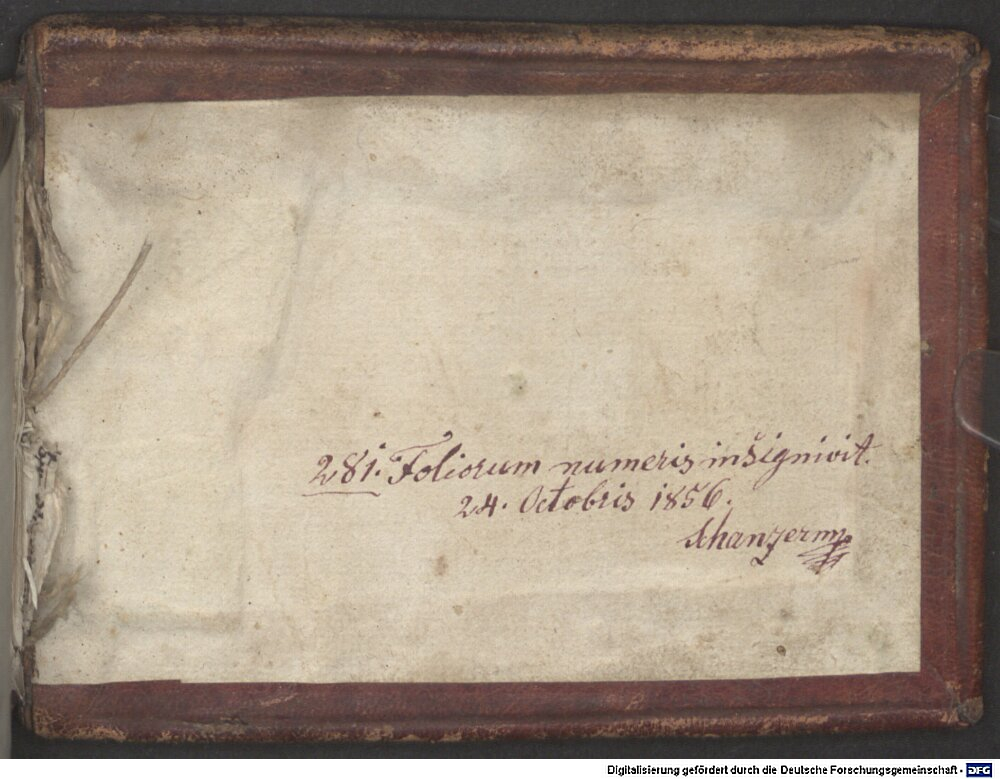 281. Foliorum numeris insignivit.
24. Octobris 1856.
Digitalisierung gefördert durch die Deutsche Forschungsgemeinschaft - DFG